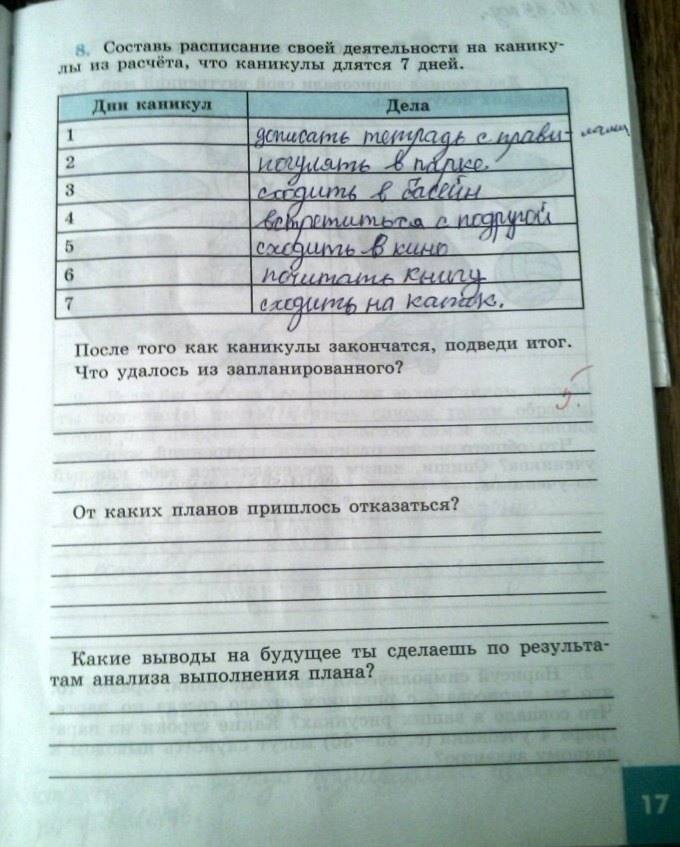 8. Составь расписание своей деятельности на канику-
лы из расчёта, что каникулы длятся 7 дней.
Дни каникул Дела
1 дописать тетрадь с прави-лами
2 погулять в парке.
3 сходить в басейн
4 встретиться с подругой
5 сходить в кино
6 почитать книгу
7 сходить на каток.
После того как каникулы закончатся, подведи итог.
Что удалось из запланированного?
5
От каких планов пришлось отказаться?
Какие выводы на будущее ты сделаешь по результа-
там анализа выполнения плана?
17